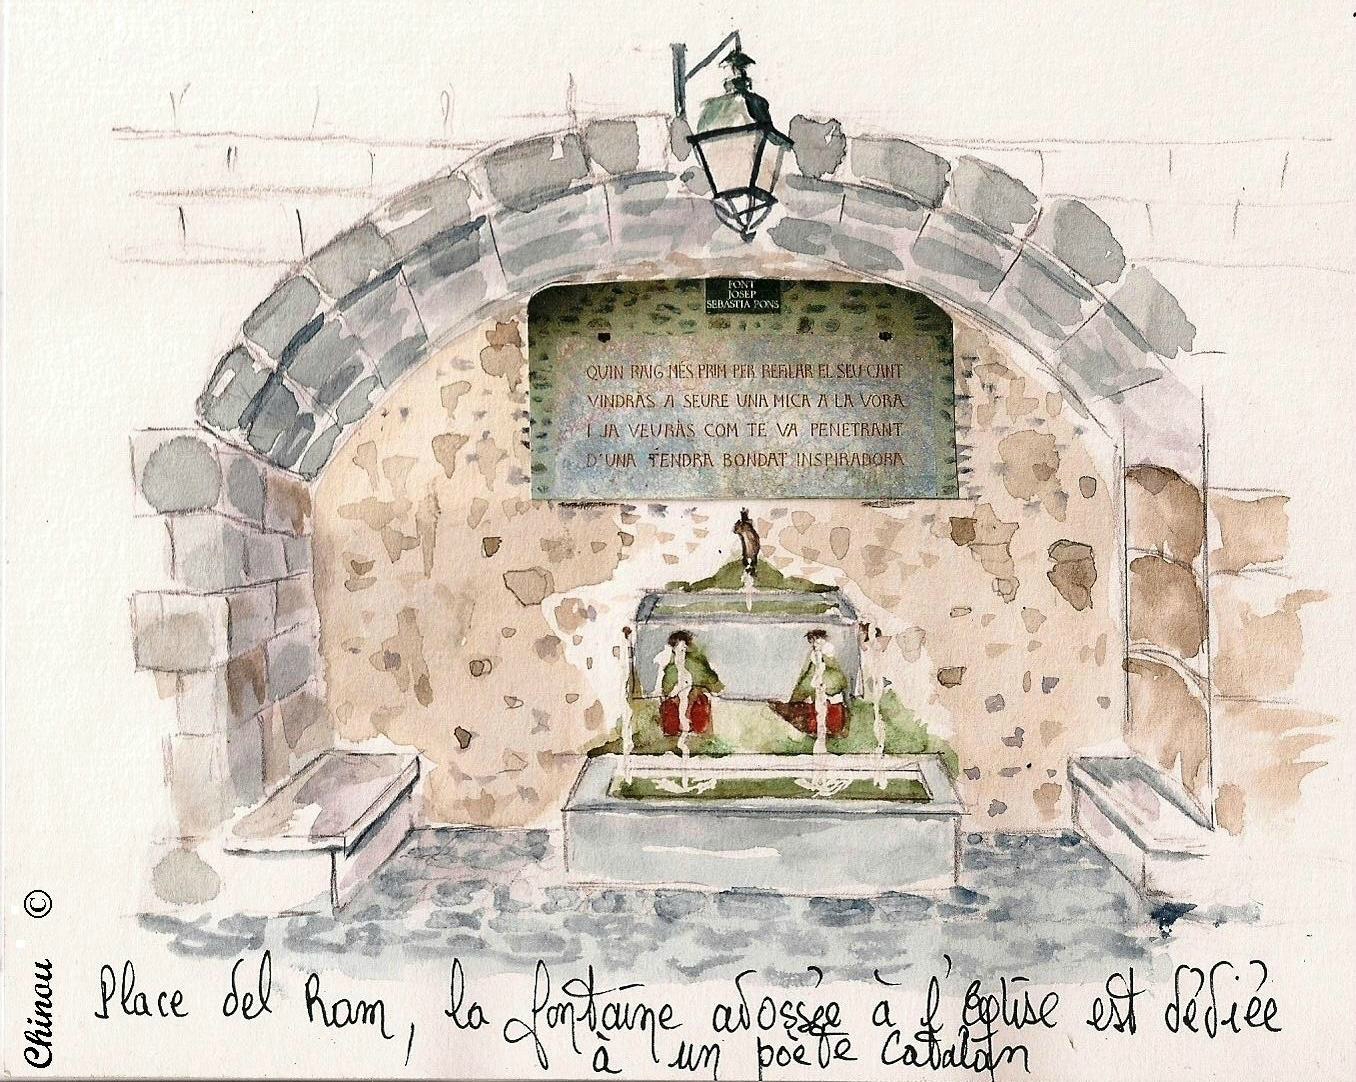 FONT
JOSEP
SEBASTIA PONS
QUIN RAIG MÉS PRIM PER REFILAR EL SEU CANT
VINDRÀS A SEURE UNA MICA A LA VORA
I JA VEURÀS COM TE VA PENETRANT
D'UNA TENDRA BONDAT INSPIRADORA
Place del Ram, la fontaine adossée à l'Eglise est dédiée
à un poète Catalan
Chinou ©